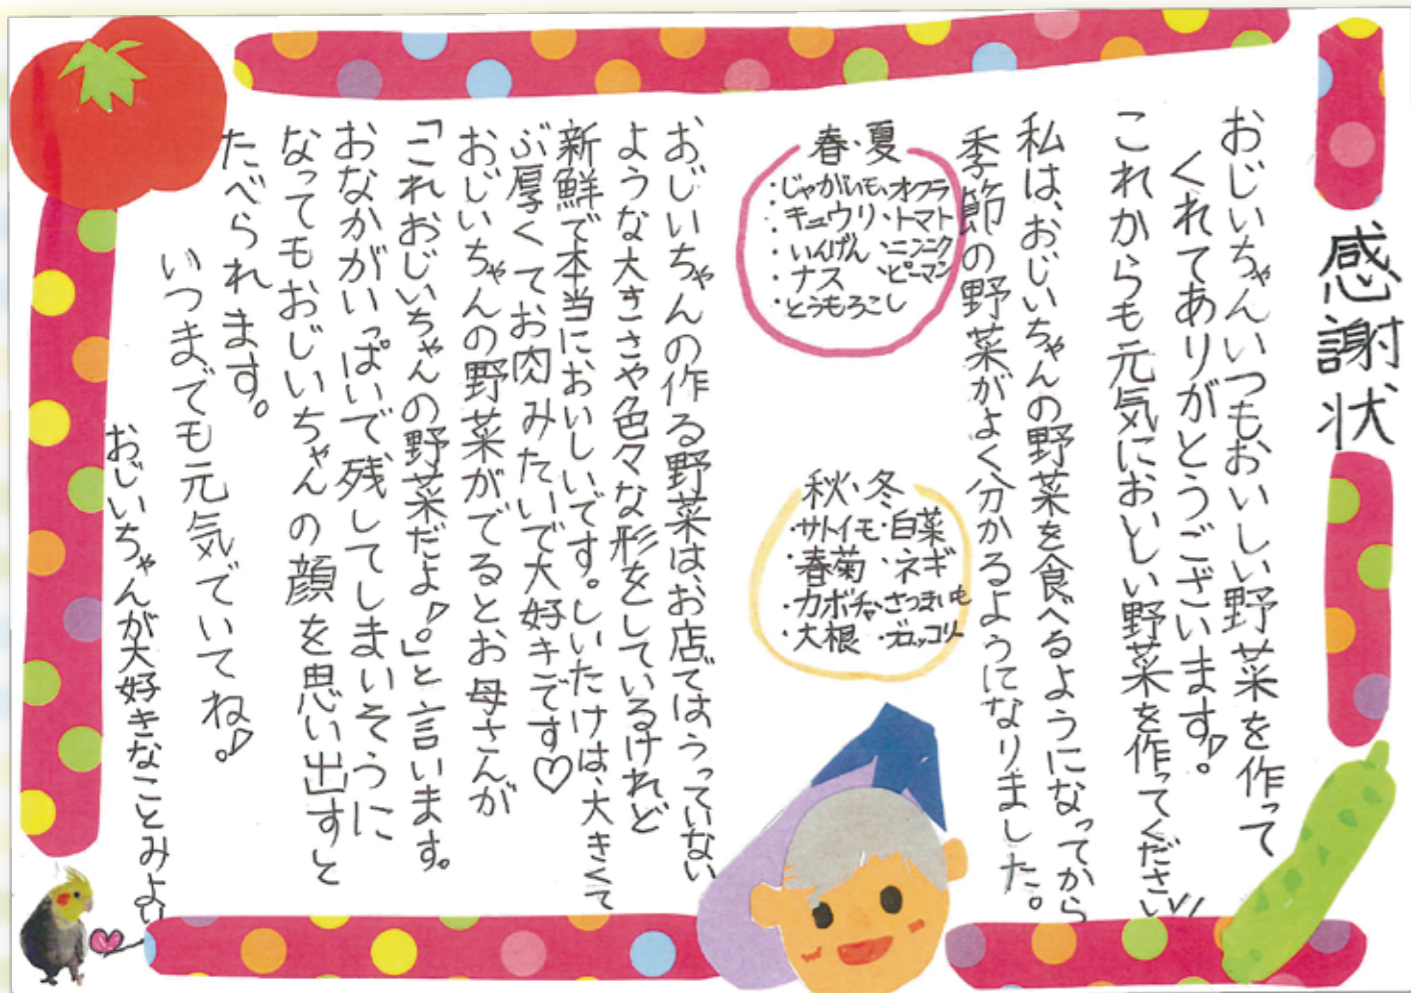 感謝状
おじいちゃんいつもおいしい野菜を作って
くれてありがとうございます。
これからも元気においしい野菜を作ってください
私は、おじいちゃんの野菜を食べるようになってから
季節の野菜がよく分かるようになりました。
春・夏
・じゃがいも・オクラ
・キュウリ・トマト
・いんげん・ニンニク
・ナス・ピーマン
・とうもろこし
秋・冬
・サトイモ・白菜
・春菊・ネギ
・カボチャ・さつまいも
・大根・ブロッコリー
おじいちゃんの作る野菜はお店ではうっていない
ような大きさや色々な形をしているけれど
新鮮で本当においしいです。しいたけは、大きくて
ぶ厚くてお肉みたいで大好きです♡
おじいちゃんの野菜がでるとお母さんが
「これおじいちゃんの野菜だよ。」と言います。
おなかがいっぱいで残してしまいそうに
なってもおじいちゃんの顔を思い出すと
たべられます。
いつまでも元気でいてね。
おじいちゃんが大好きなことみより